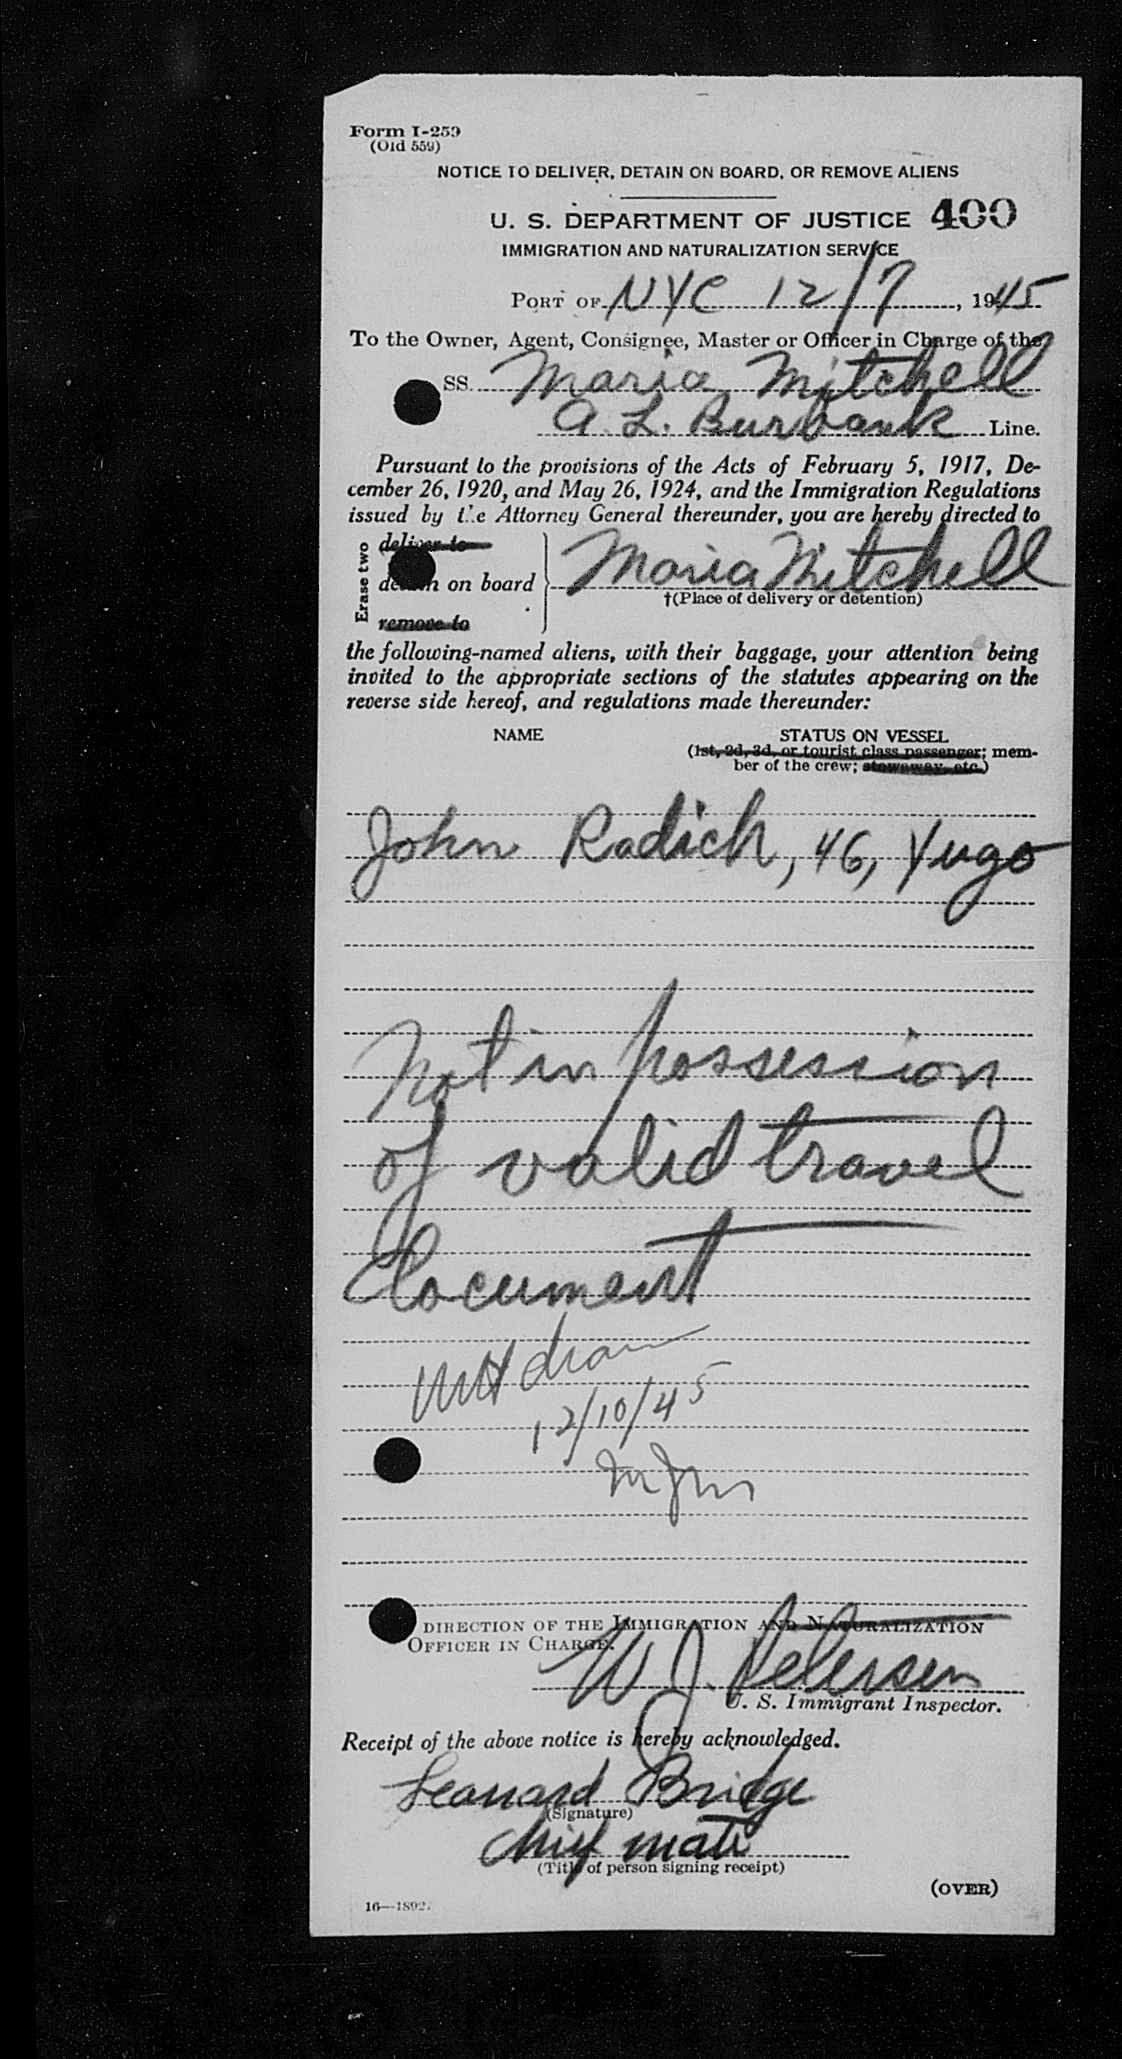 Form I-259
(Old 559)
NOTICE TO DELIVER, DETAIN ON BOARD, OR REMOVE ALIENS
U. S. DEPARTMENT OF JUSTICE 400
IMMIGRATION AND NATURALIZATION SERVICE
PORT OF NYC 12/7, 1945
To the Owner, Agent, Consignee, Master or Officer in Charge of the
SS. Maria Mitchell
A. L. Burbank Line.
Pursuant to the provisions of the Acts of February 5, 1917, De-
cember 26, 1920, and May 26, 1924, and the Immigration Regulations
issued by the Attorney General thereunder, you are hereby directed to
Erase two
deliver to
detain on board Maria Mitchell
†(Place of delivery or detention)
remove to
the following-named aliens, with their baggage, your attention being
invited to the appropriate sections of the statutes appearing on the
reverse side hereof, and regulations made thereunder:
NAME STATUS ON VESSEL
(1st, 2d, 3d, or tourist class passenger; mem-
ber of the crew; stowaway, etc.)
John Radich, 46, Yugo
Not in possession
of valid travel
document
Withdrawn
12/10/45
DIRECTION OF THE IMMIGRATION AND NATURALIZATION
OFFICER IN CHARGE.
W J. Petersen
U. S. Immigrant Inspector.
Receipt of the above notice is hereby acknowledged.
Leonard Bridge
(Signature)
Chief mate
(Title of person signing receipt)
(OVER)
16—1892